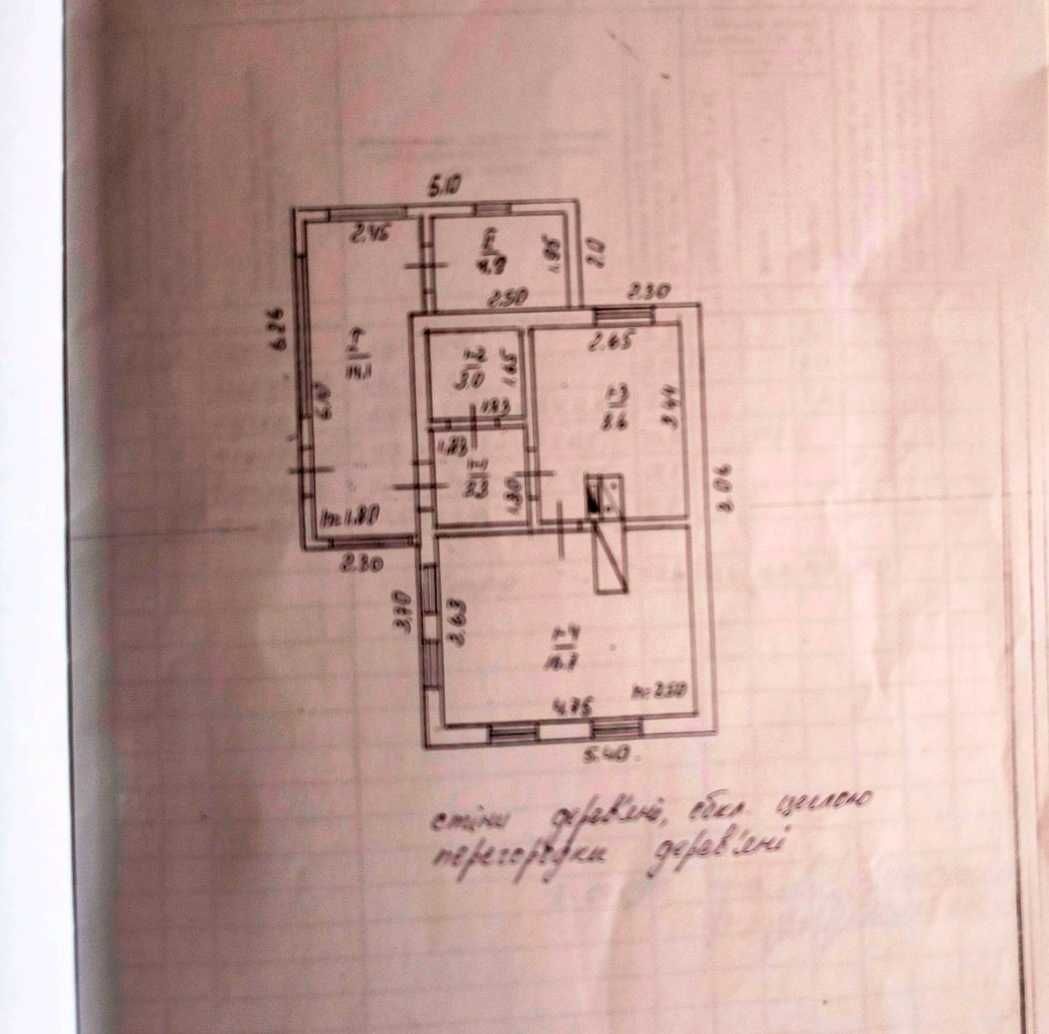 5.10
2.45
1.95
2.0
4.9
2.50
2.30
6.26
2.65
1-2
3.0
1.65
14.1
1-3
8.6
3.44
6.10
1.83
1.83
1.80
8.06
h=1.80
2.30
3.70
3.63
1-4
h=2.50
4.75
5.40
стіни дерев'яні, обкл. цеглою
перегородки дерев'яні